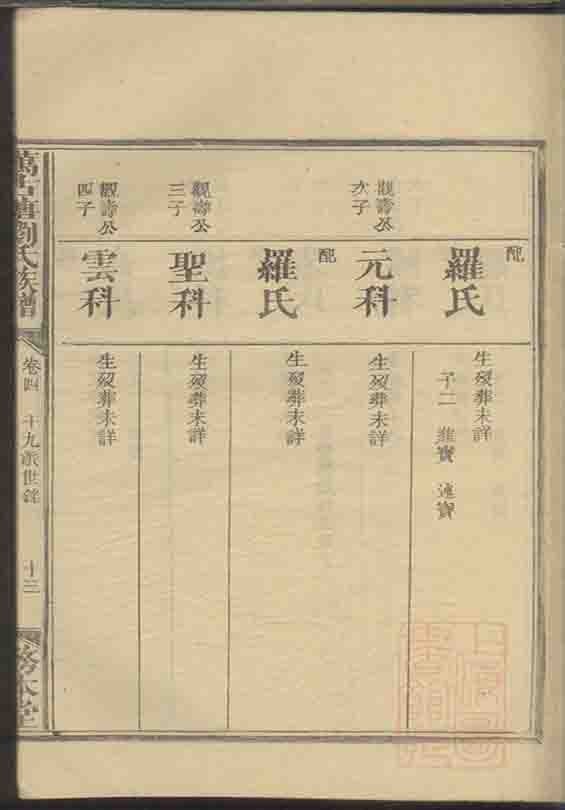 配
羅氏
生歿葬未詳
子二 進寶 連寶
觀壽公
次子
元科
生歿葬未詳
配
羅氏
生歿葬未詳
觀壽公
三子
聖科
生歿葬未詳
觀壽公
四子
雲科
生歿葬未詳
劉氏族譜
卷四
十三